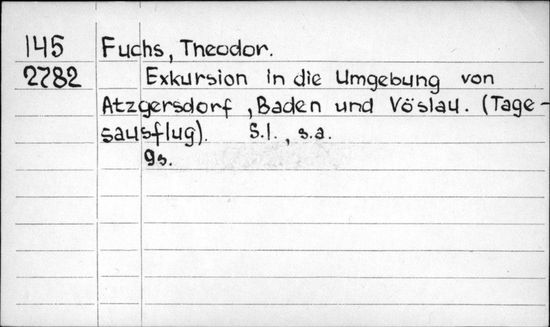 145 Fuchs, Theodor.
2782 Exkursion in die Umgebung von
Atzgersdorf, Baden und Vöslau. (Tage-
sausflug). S.l., s.a.
9s.